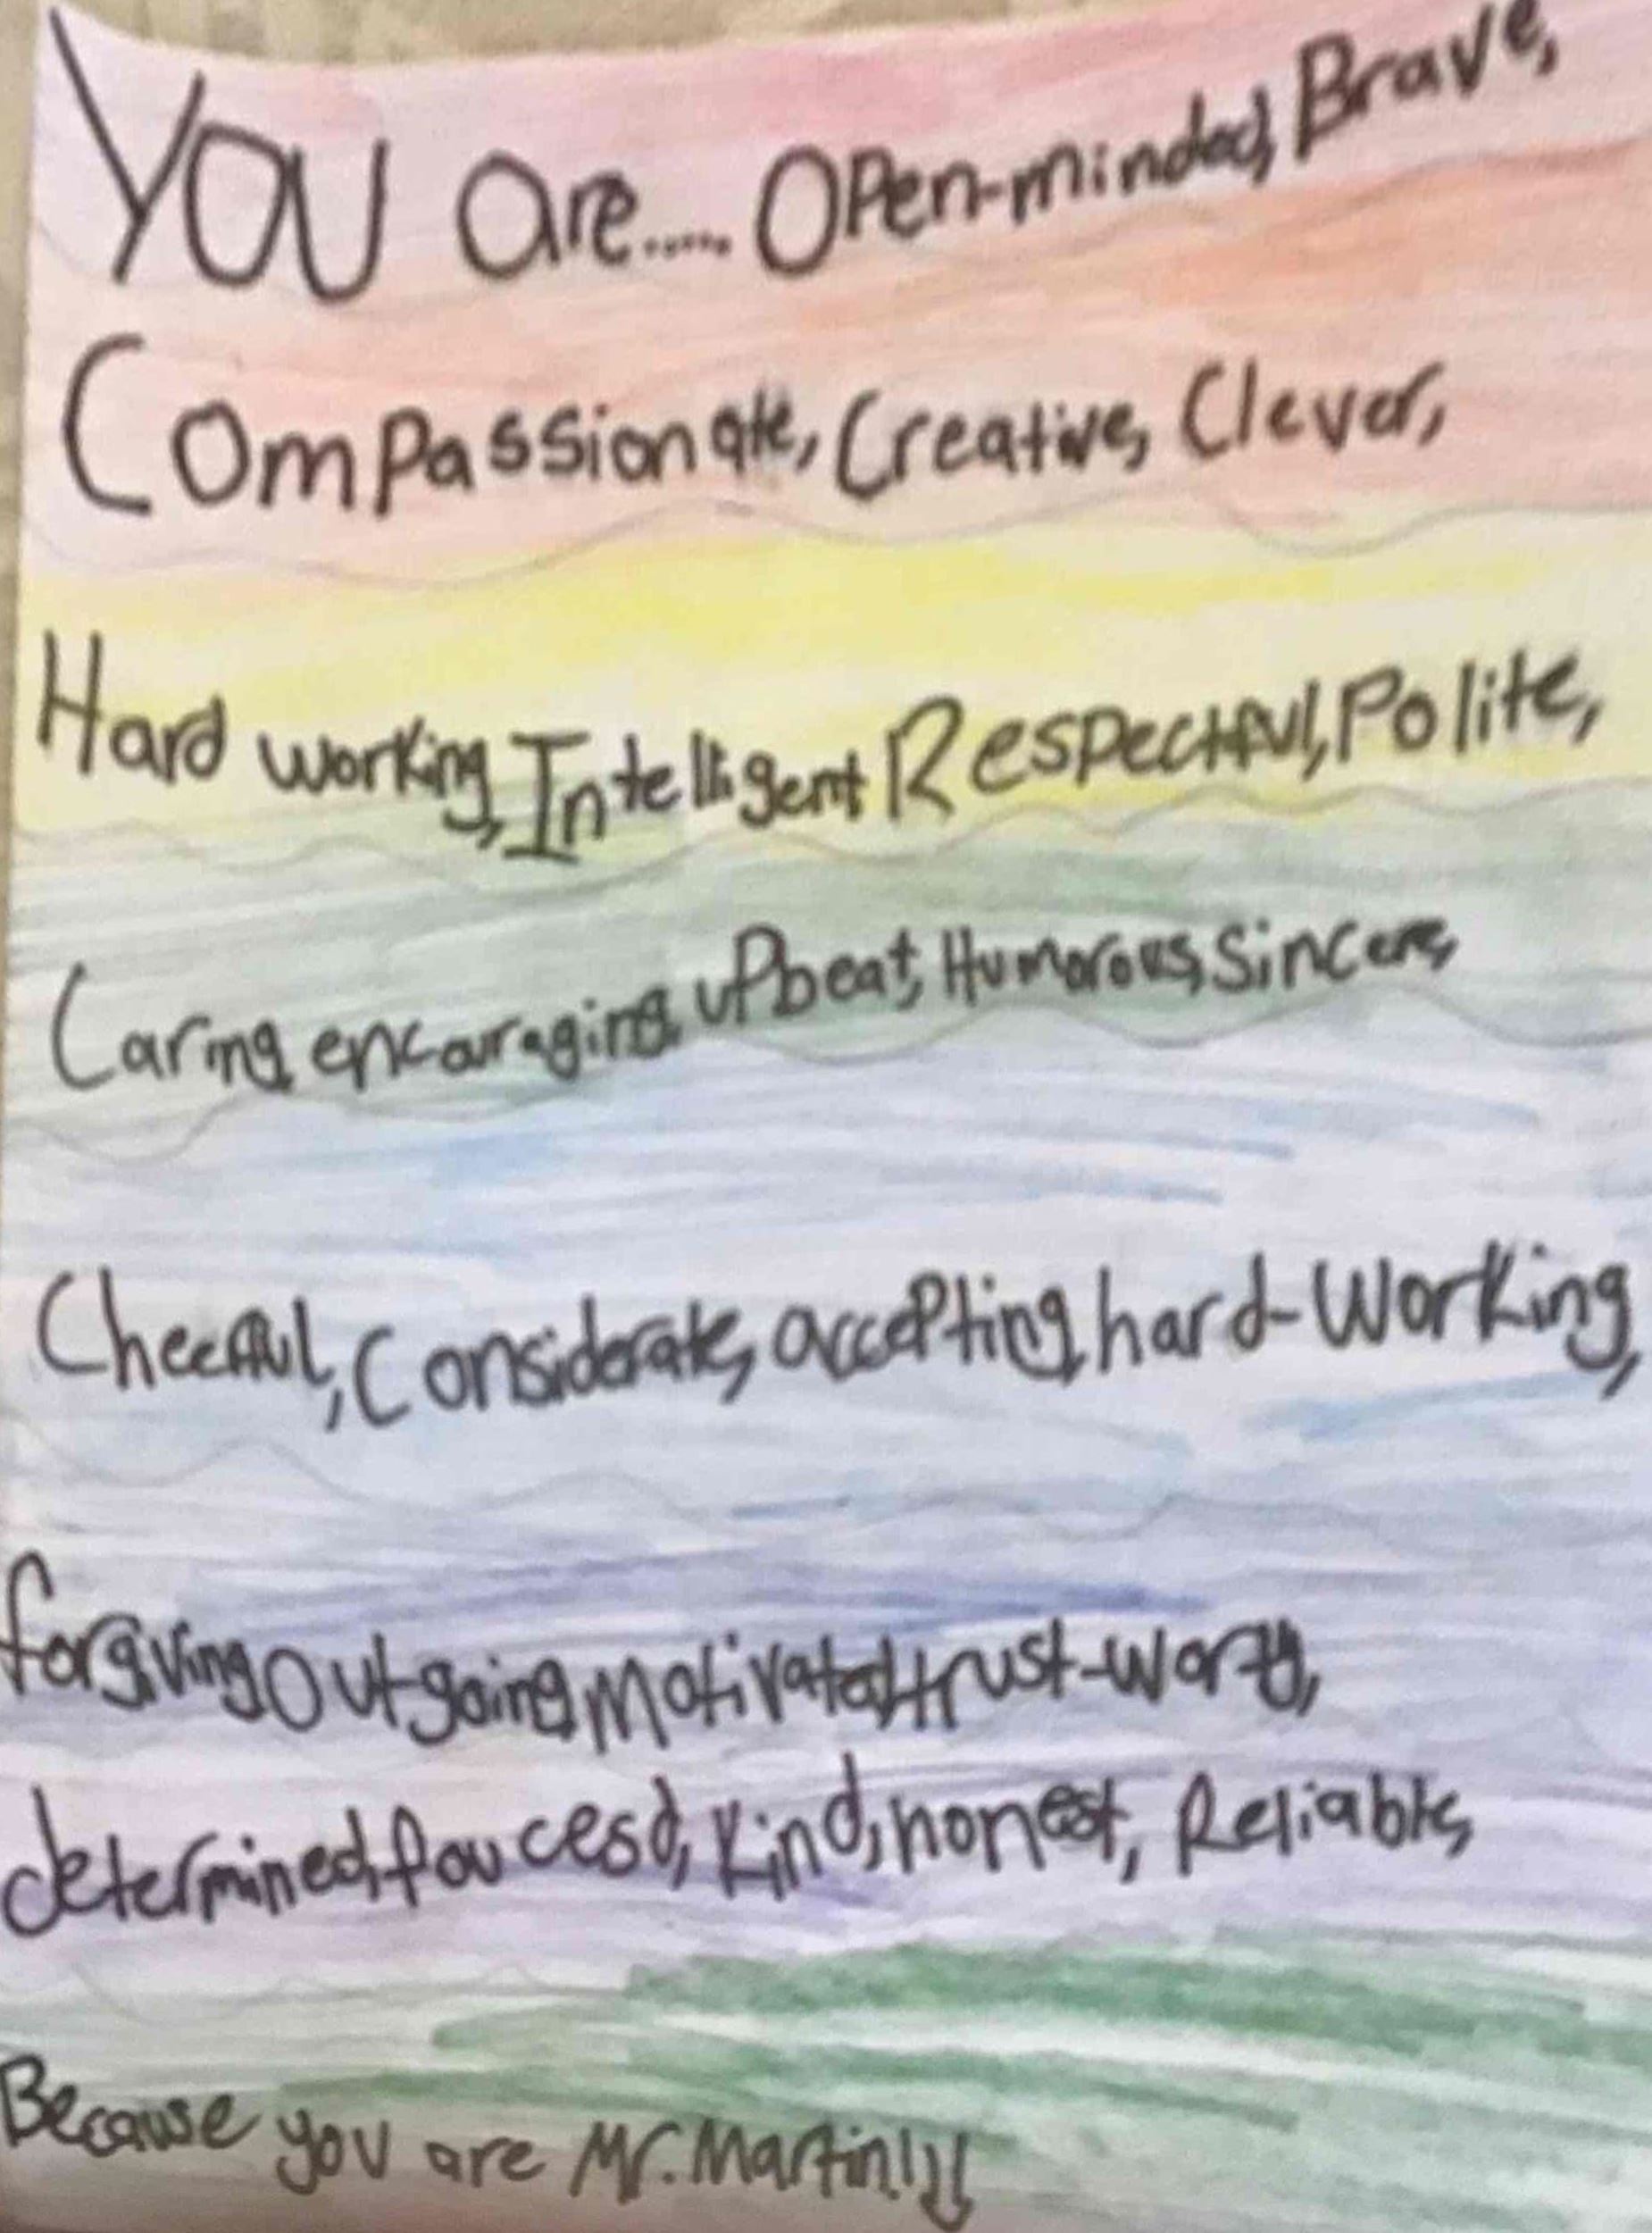 You are..... Open-minded, Brave,
Compassionate, Creative, Clever,
Hard working, Intelligent Respectful, Polite,
Caring, encouraging, upbeat, Humorous, Sincere,
Cheerful, Considerate, accepting, hard-working,
forgiving, Outgoing, motivated, trust-worty,
determined, foucesd, kind, honest, Reliable,
Because you are Mr. Martin!!!